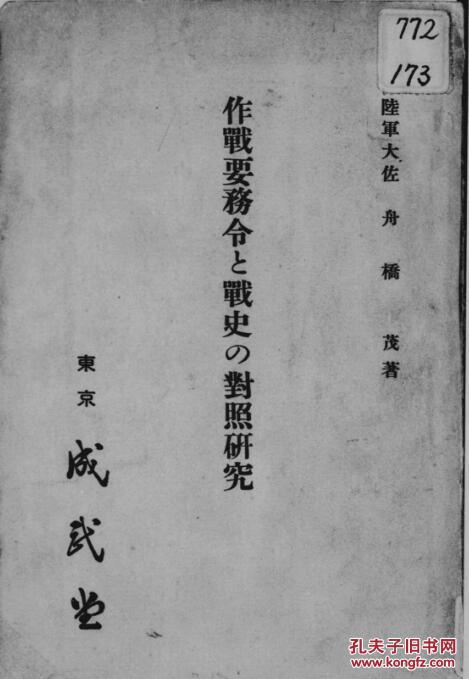 772
173
陸軍大佐 舟橋茂著
作戰要務令と戰史の對照硏究
東京 成武堂
孔夫子旧书网
www.kongfz.com